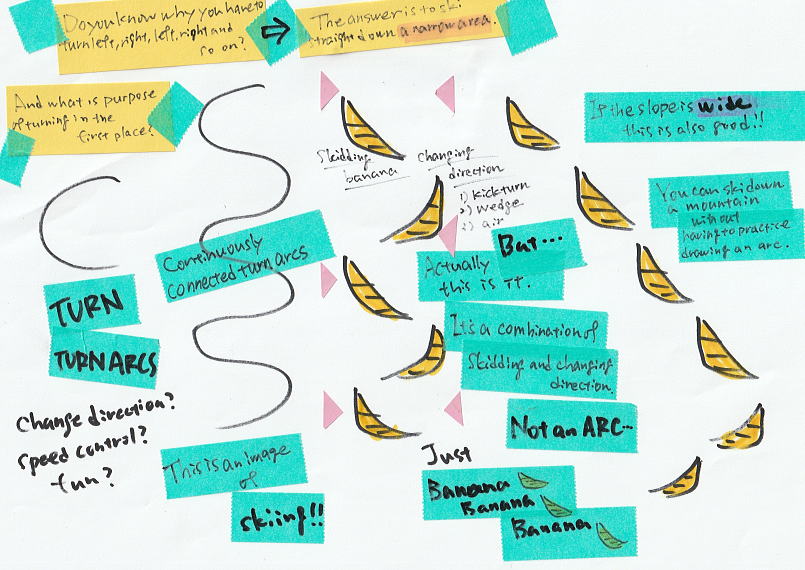 Do you know why you have to
turn left, right, left, right and
so on?
The answer is to ski
straight down a narrow area.
And what is purpose
of turning in the
first place?
If the slope is wide
this is also good!!
Skidding
banana
Changing
direction
1) kickturn
2) wedge
3) air
You can ski down
a mountain
without
having to practice
drawing an arc.
Continuously
connected turn arcs
But...
Actually
this is IT.
TURN
TURN ARCS
It's a combination of
Skidding and changing
direction.
Change direction?
Speed control?
fun?
Not an ARC...
This is an image
of
skiing!!
Just
Banana
Banana
Banana